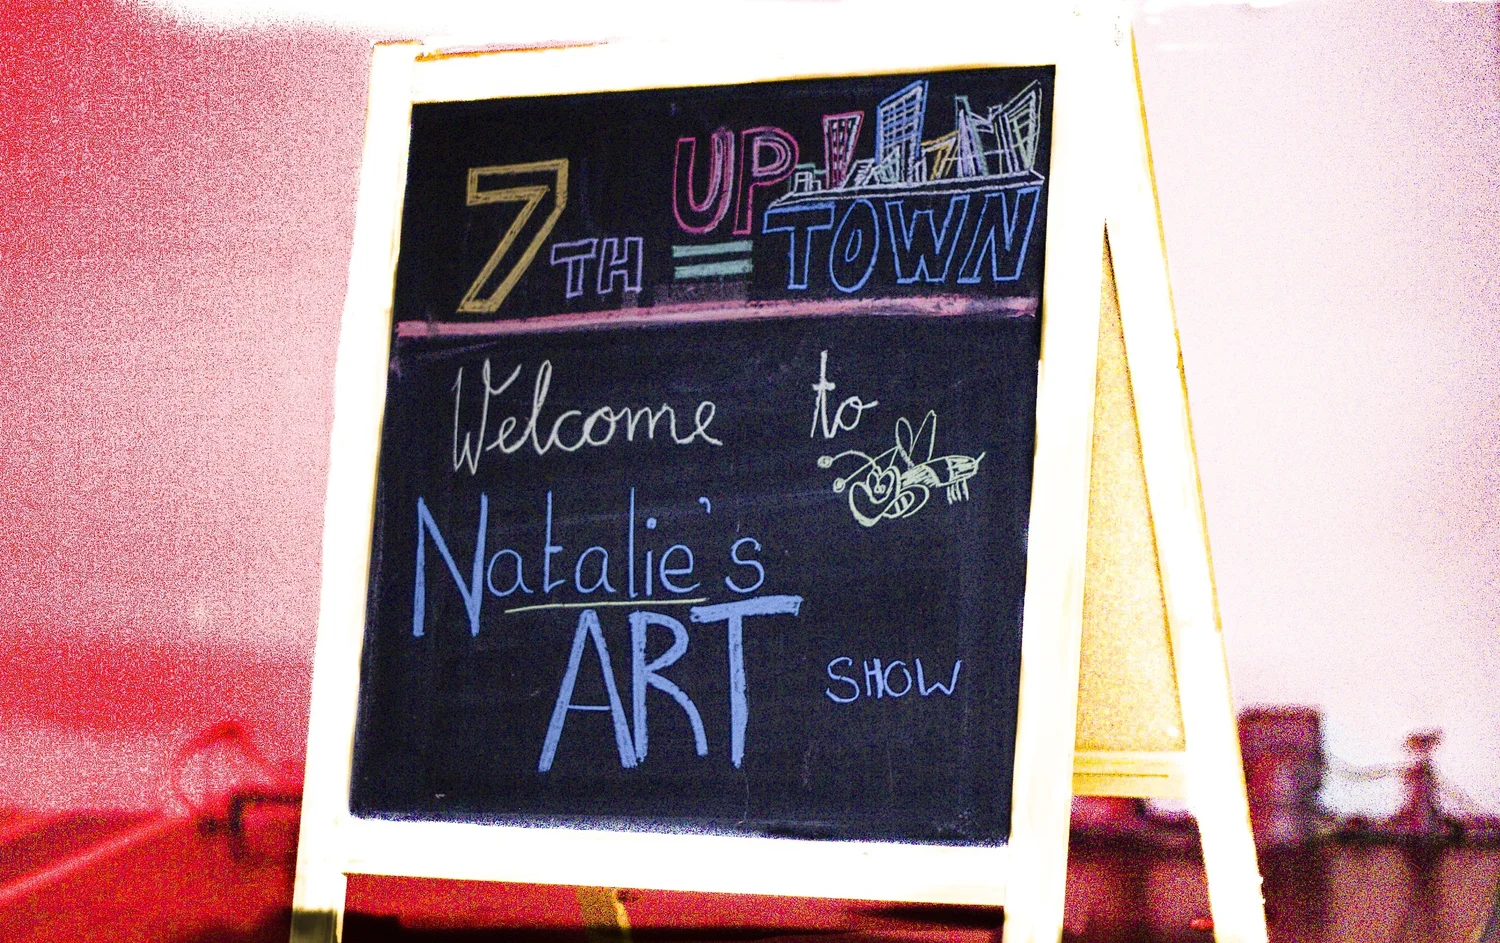 7TH = UP
TOWN
Welcome to
Natalie's
ART SHOW